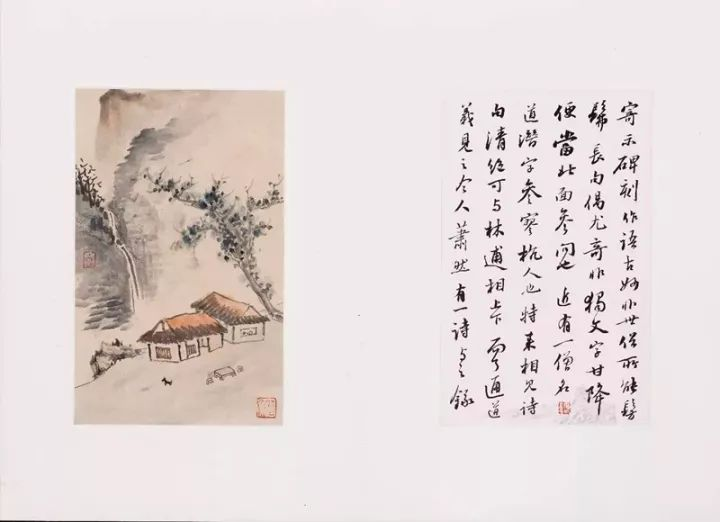 寄示碑刻作語古妙非世俗所能髣
髴長句偈尤奇非獨文字甘降
便當北面參问也近有一僧名
道潛字參寥杭人也特来相見詩
句清絕可与林逋相上下而通道
義見之令人蕭然有一詩与之錄